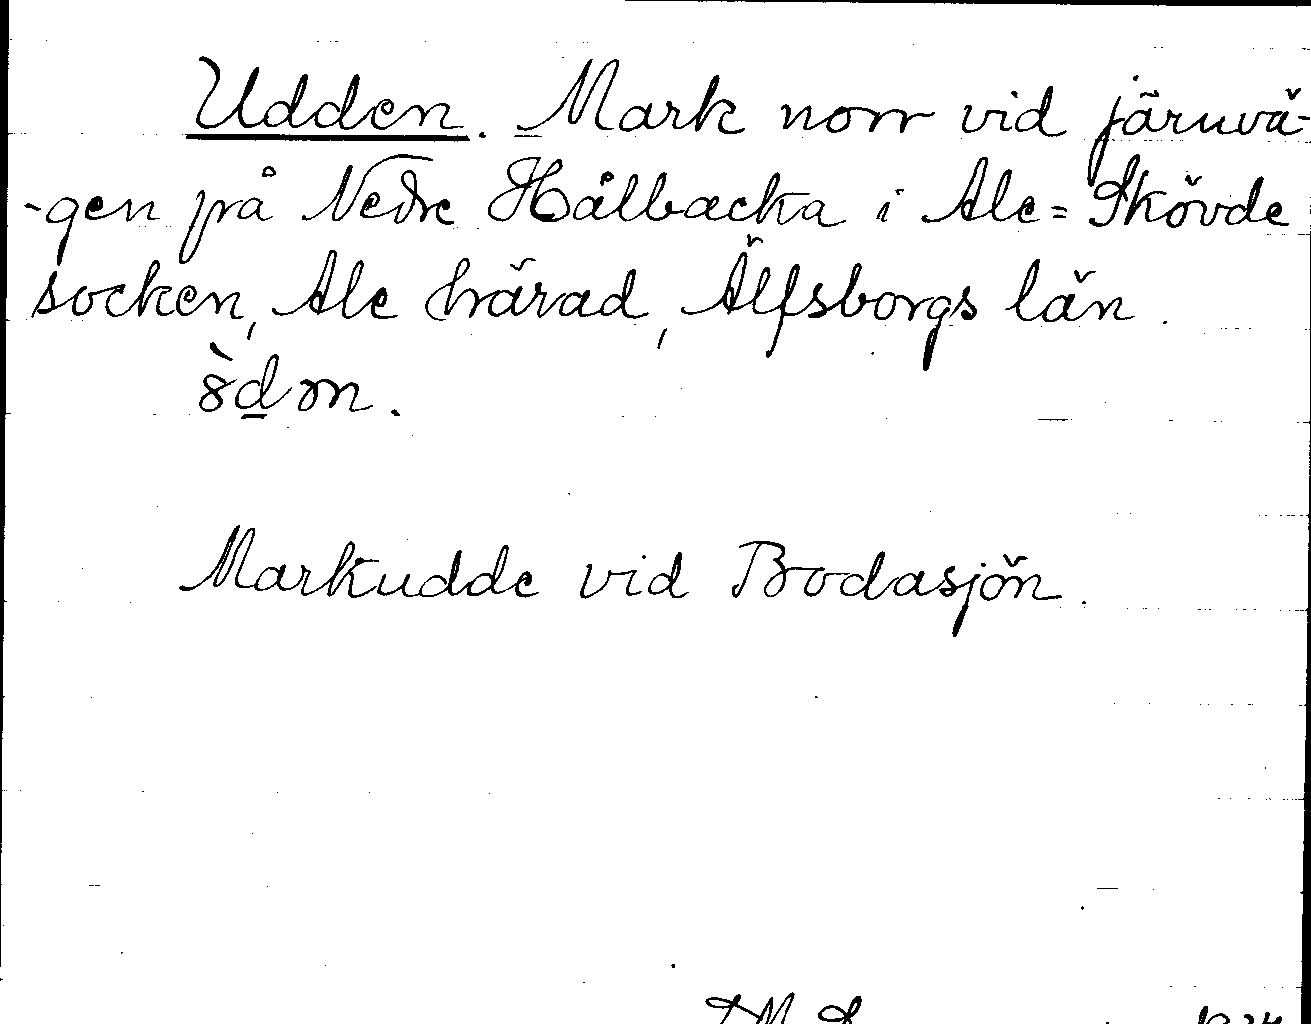 Udden. Mark norr vid järnvä-
-gen på Nedre Hålbacka i Ale=Skövde
socken, Ale härad, Älfsborgs län.
Markudde vid Bodasjön.